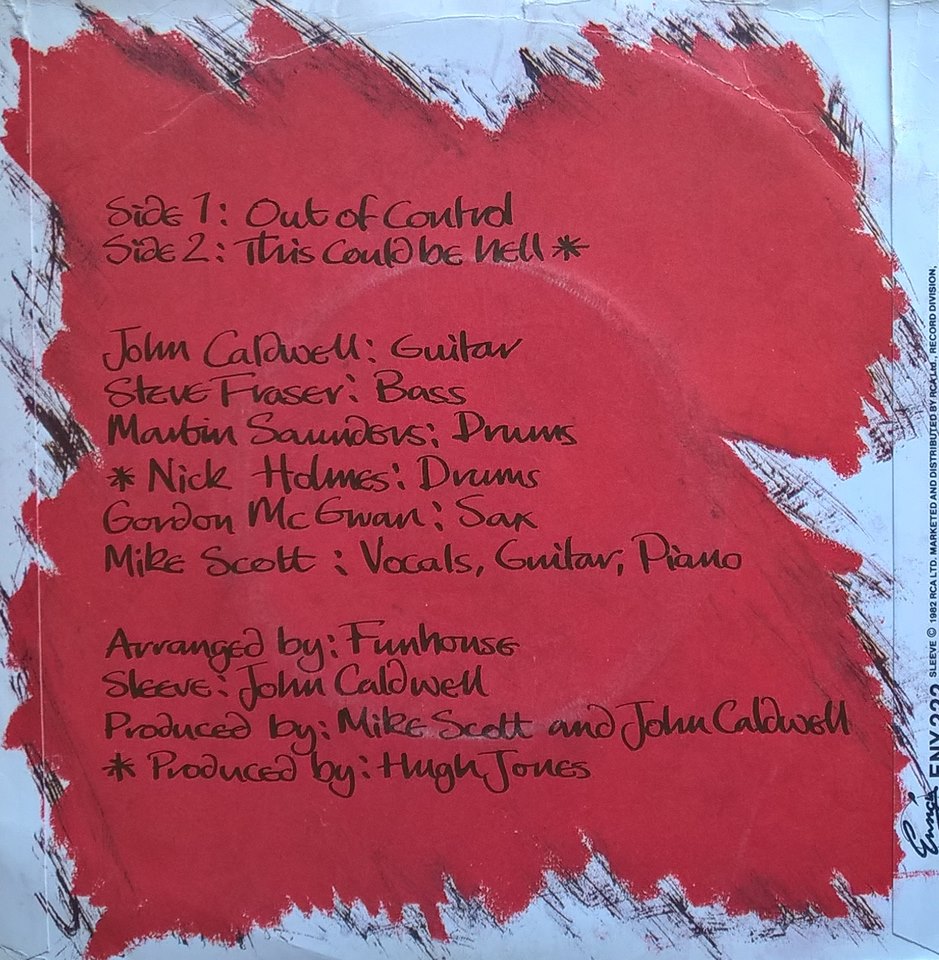 Side 1: Out of Control
Side 2: This Could be Hell *
John Caldwell: Guitar
Steve Fraser: Bass
Martin Saunders: Drums
* Nick Holmes: Drums
Gordon McGwan: Sax
Mike Scott: Vocals, Guitar, Piano
Arranged by: Funhouse
Sleeve: John Caldwell
Produced by: Mike Scott and John Caldwell
* Produced by: Hugh Jones
Ensign ENY 222 SLEEVE © 1982 RCA LTD. MARKETED AND DISTRIBUTED BY RCA Ltd., RECORD DIVISION,